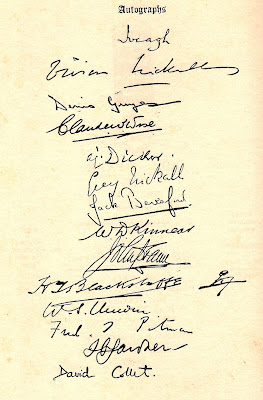 Autographs
Iveagh
Vivian Nickalls
Denis Guye
Claude
A. Dicker.
Guy Nickalls
Jack Beresford
W D Kinnear
H T Blackstaffe
W. S. Unwin
Fred. I Pitman
J B Gardner
David Collet.